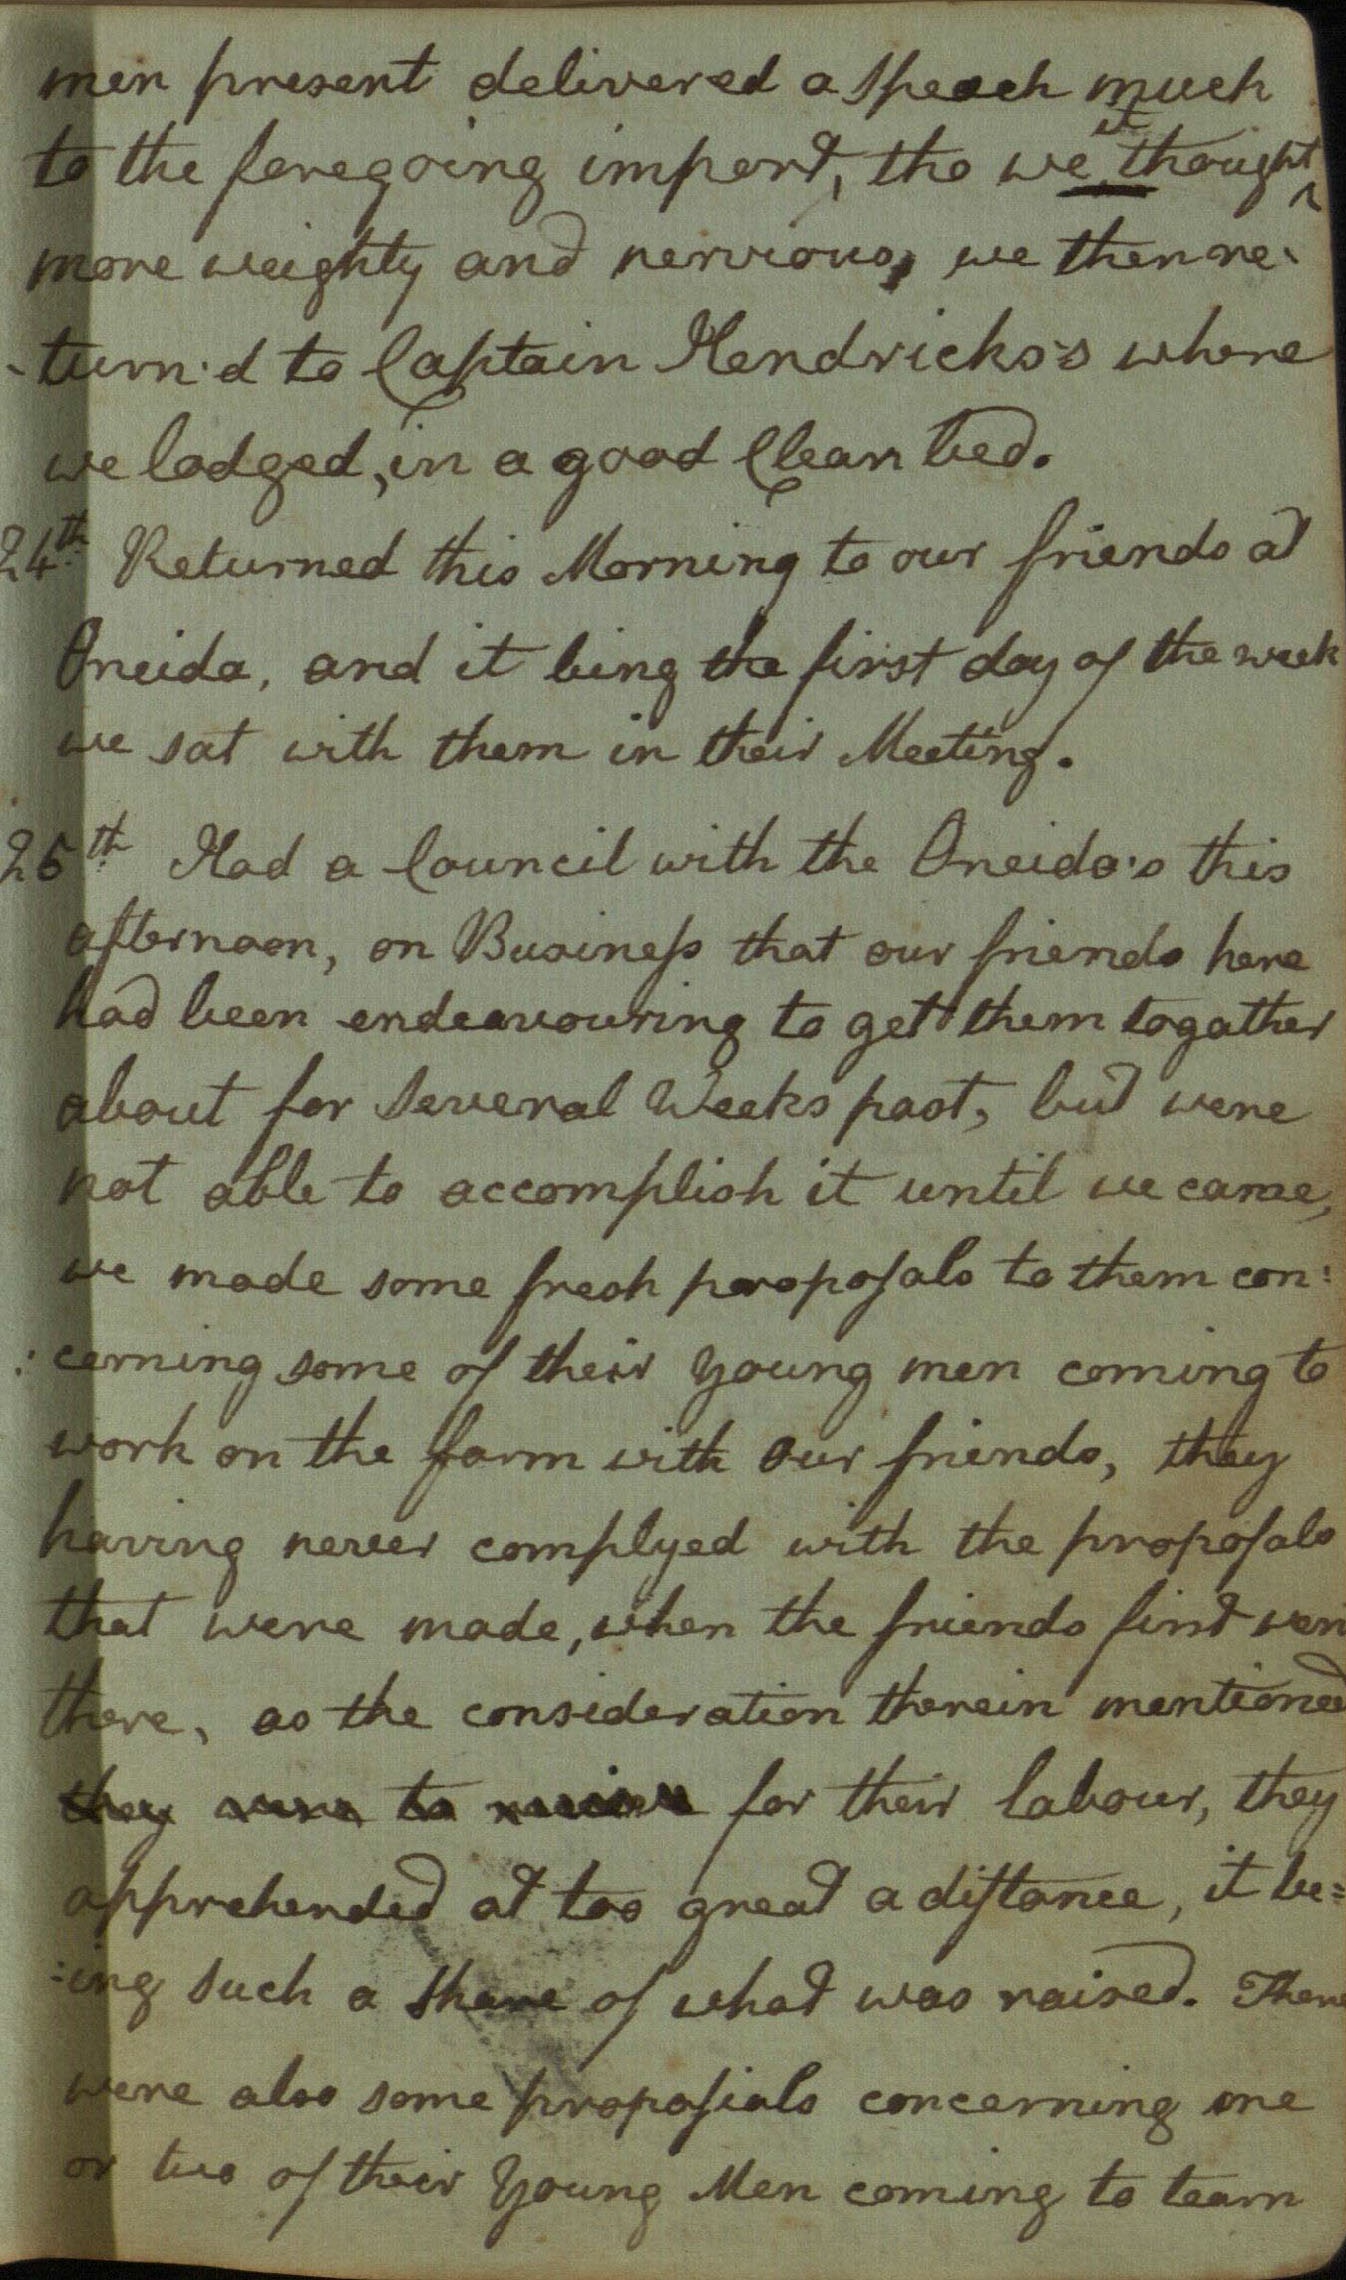 men present delivered a Speach much
to the foregoing import, tho we thought it
more weighty and nervious, we then re-
-turn'd to Captain Hendricks's where
we lodged, in a good Clean bed.
24th Returned this Morning to our friends at
Oneida, and it being the first day of the week
we sat with them in their Meeting.
25th Had a Council with the Oneida's this
afternoon, on Business that our friends here
had been endeavouring to get them togather
about for Several Weeks past, but were
not able to accomplish it until we came,
we made some fresh proposals to them con:
:cerning some of their Young men coming to
work on the farm with our friends, they
having never complyed with the proposals
that were made, when the friends first went
there, as the consideration therein mentioned
they were to receive for their labour, they
apprehended at too great a distance, it be=
:ing such a Share of what was raised. There
were also some proposials concerning one
or two of their Young Men coming to learn